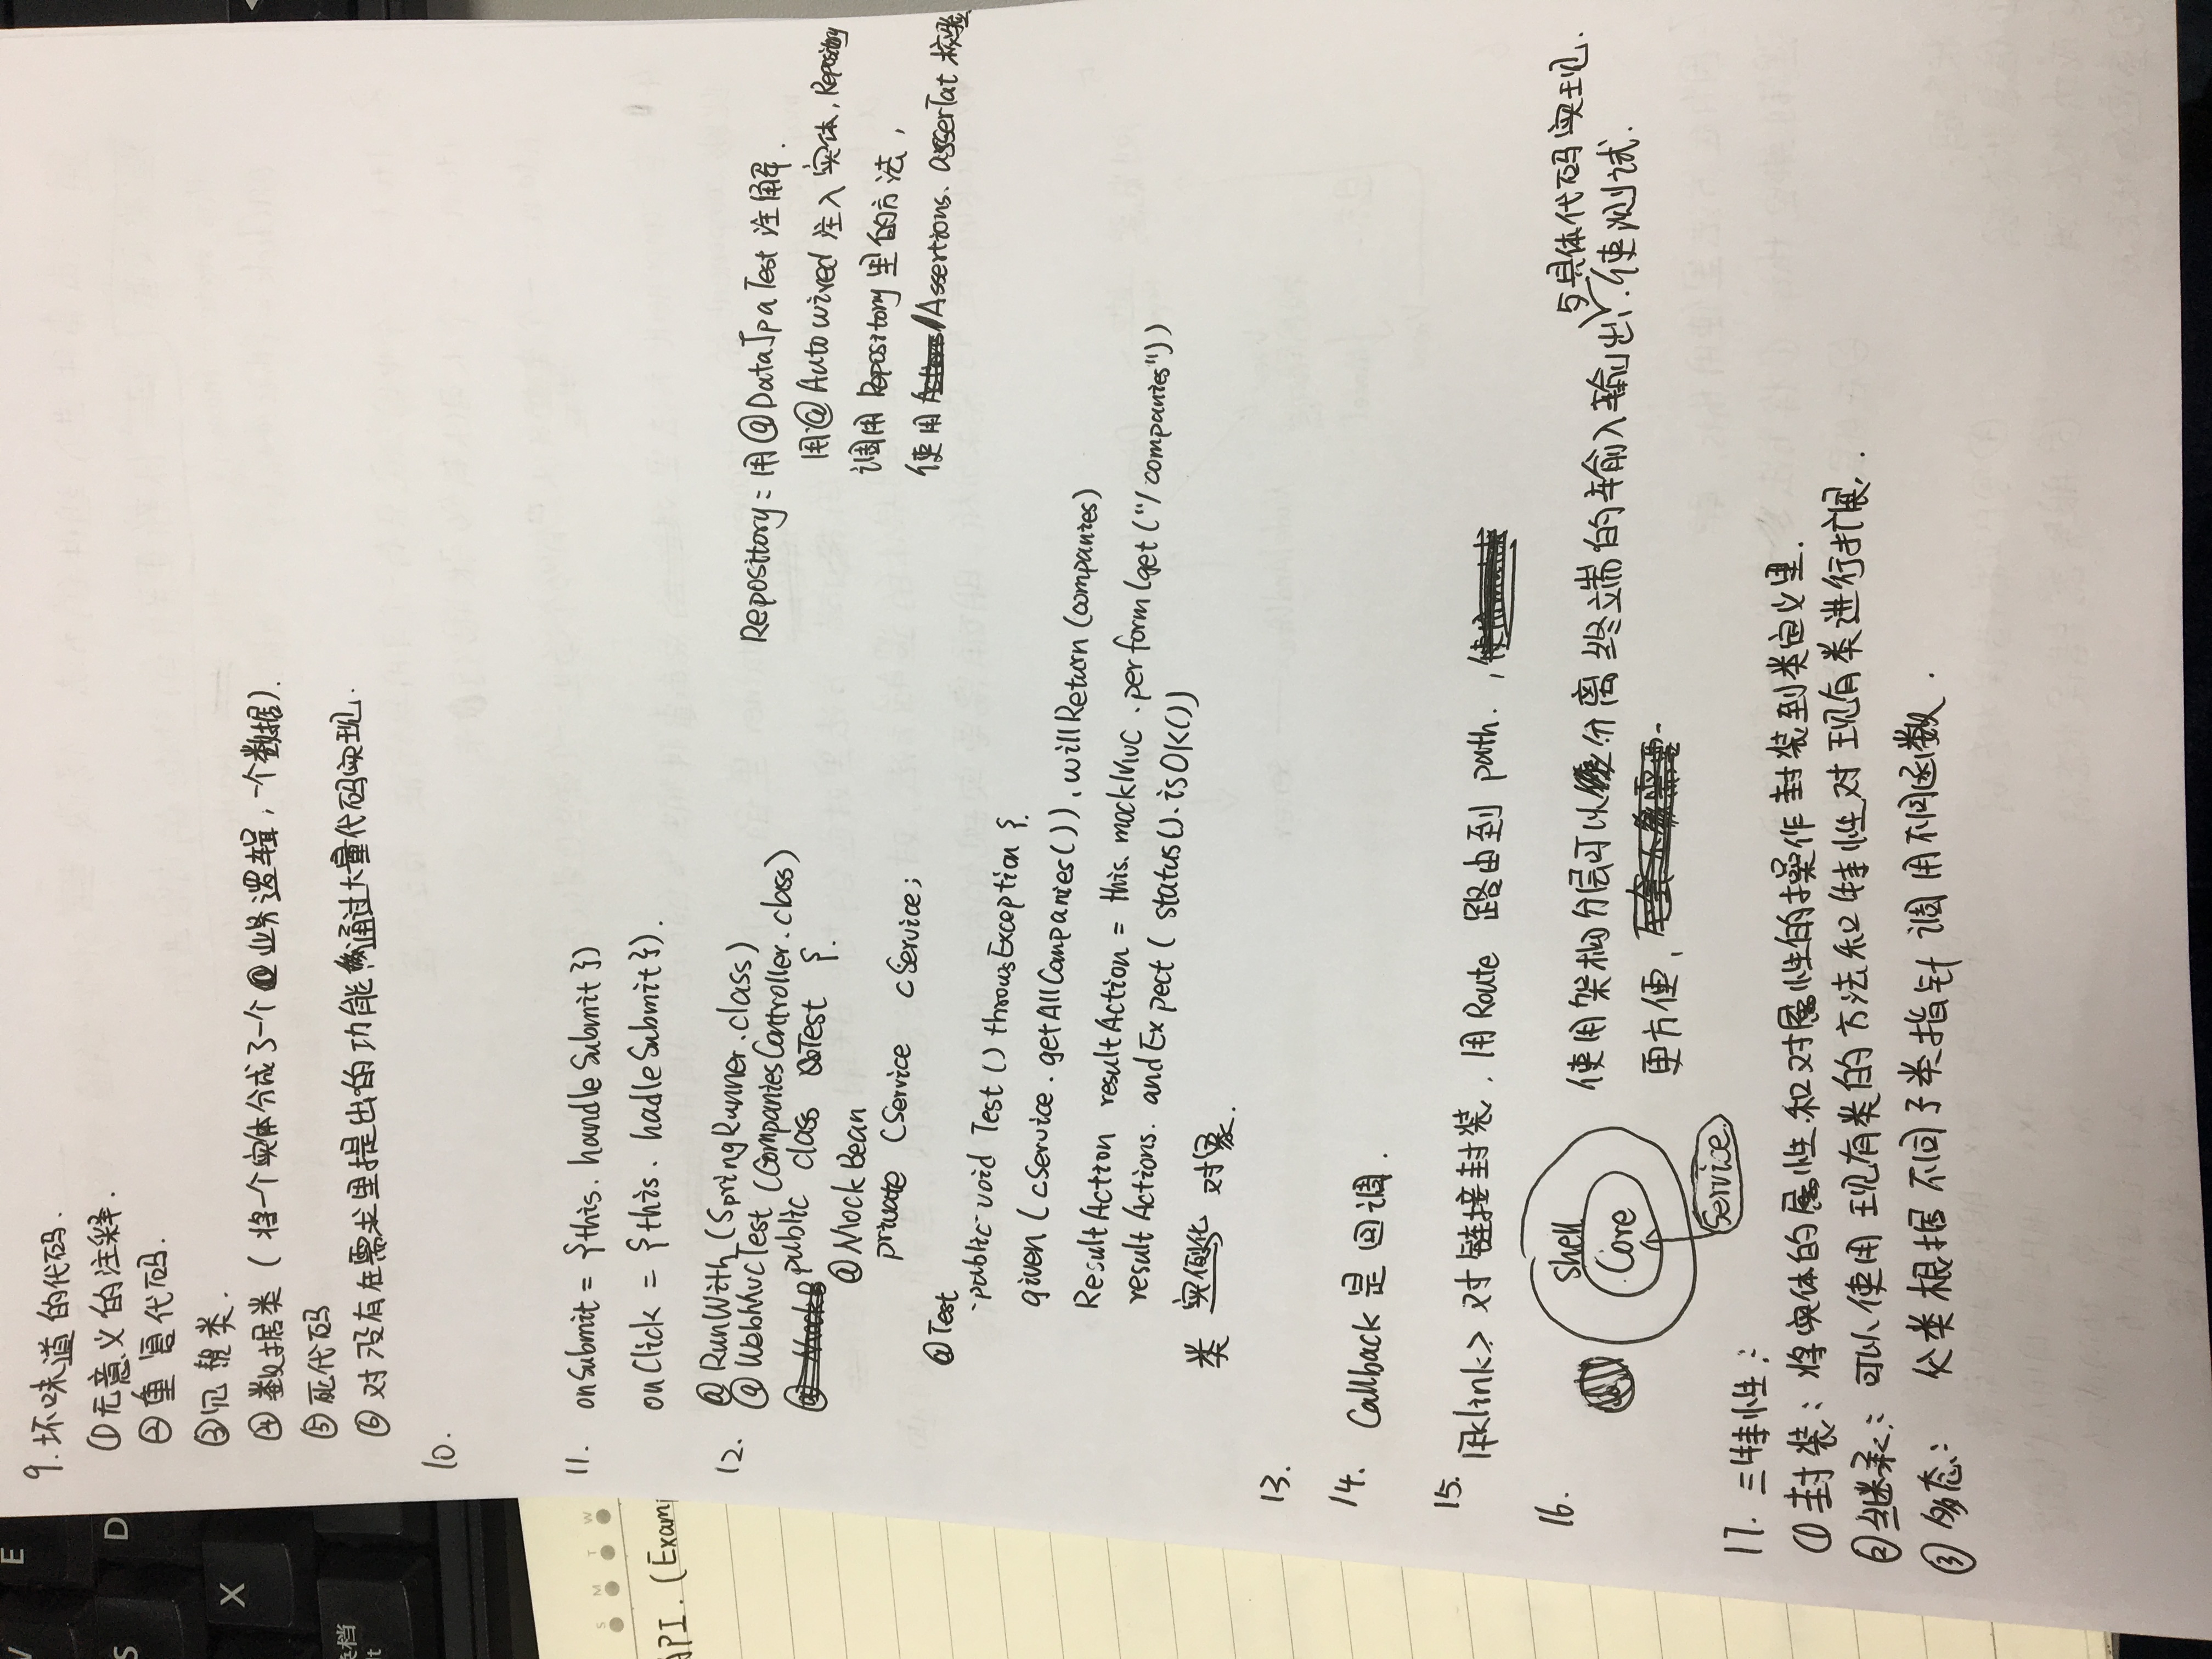 W
E
S
D
X
换档
S M T W
API. (Exam
9. 坏味道的代码.
①无意义的注释.
②重复代码.
③冗赘类.
④数据类（将一个实体分成了一个业务逻辑，一个数据）.
⑤死代码
⑥对没有在需求里提出的功能通过大量代码实现.
10.
11. onSubmit = {this. handleSubmit })
onClick = {this. hadleSubmit}).
12. @RunWith (SpringRunner.class)
@WebMvcTest (CompaniesController.class)
public class Test {
@MockBean
private CService cService;
@Test
public void Test () throws Exception {
given (cService.getAllCompanies()).willReturn (companies)
ResultAction resultAction = this.mockMvc.perform(get("/companies"))
resultActions. andExpect ( status().isOK())
类 实例化 对象.
Repository: 用@DataJpaTest 注解.
用@Autowired 注入实体, Repository
调用Repository里的方法,
使用Assertions. asserTat 校验
13.
14. Callback 是回调.
15. 用<link> 对链接封装. 用Route 路由到 path. ,
16. shell
Core
Service
使用架构分层可以分离终端的输入输出与具体代码实现. 使测试.
更方便,
17. 三特性:
①封装: 将实体的属性和对属性的操作封装到类定义里.
②继承: 可以使用现有类的方法和特性对现有类进行扩展.
③多态: 父类根据不同子类指针调用不同函数.